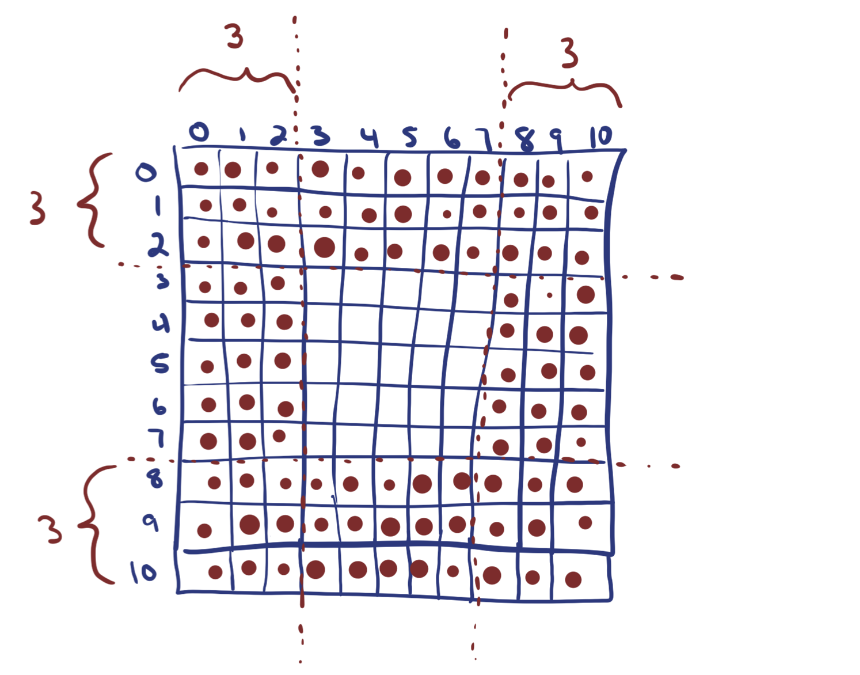 3
3
0 1 2 3 4 5 6 7 8 9 10
0
3
1
2
3
4
5
6
7
8
3
9
10